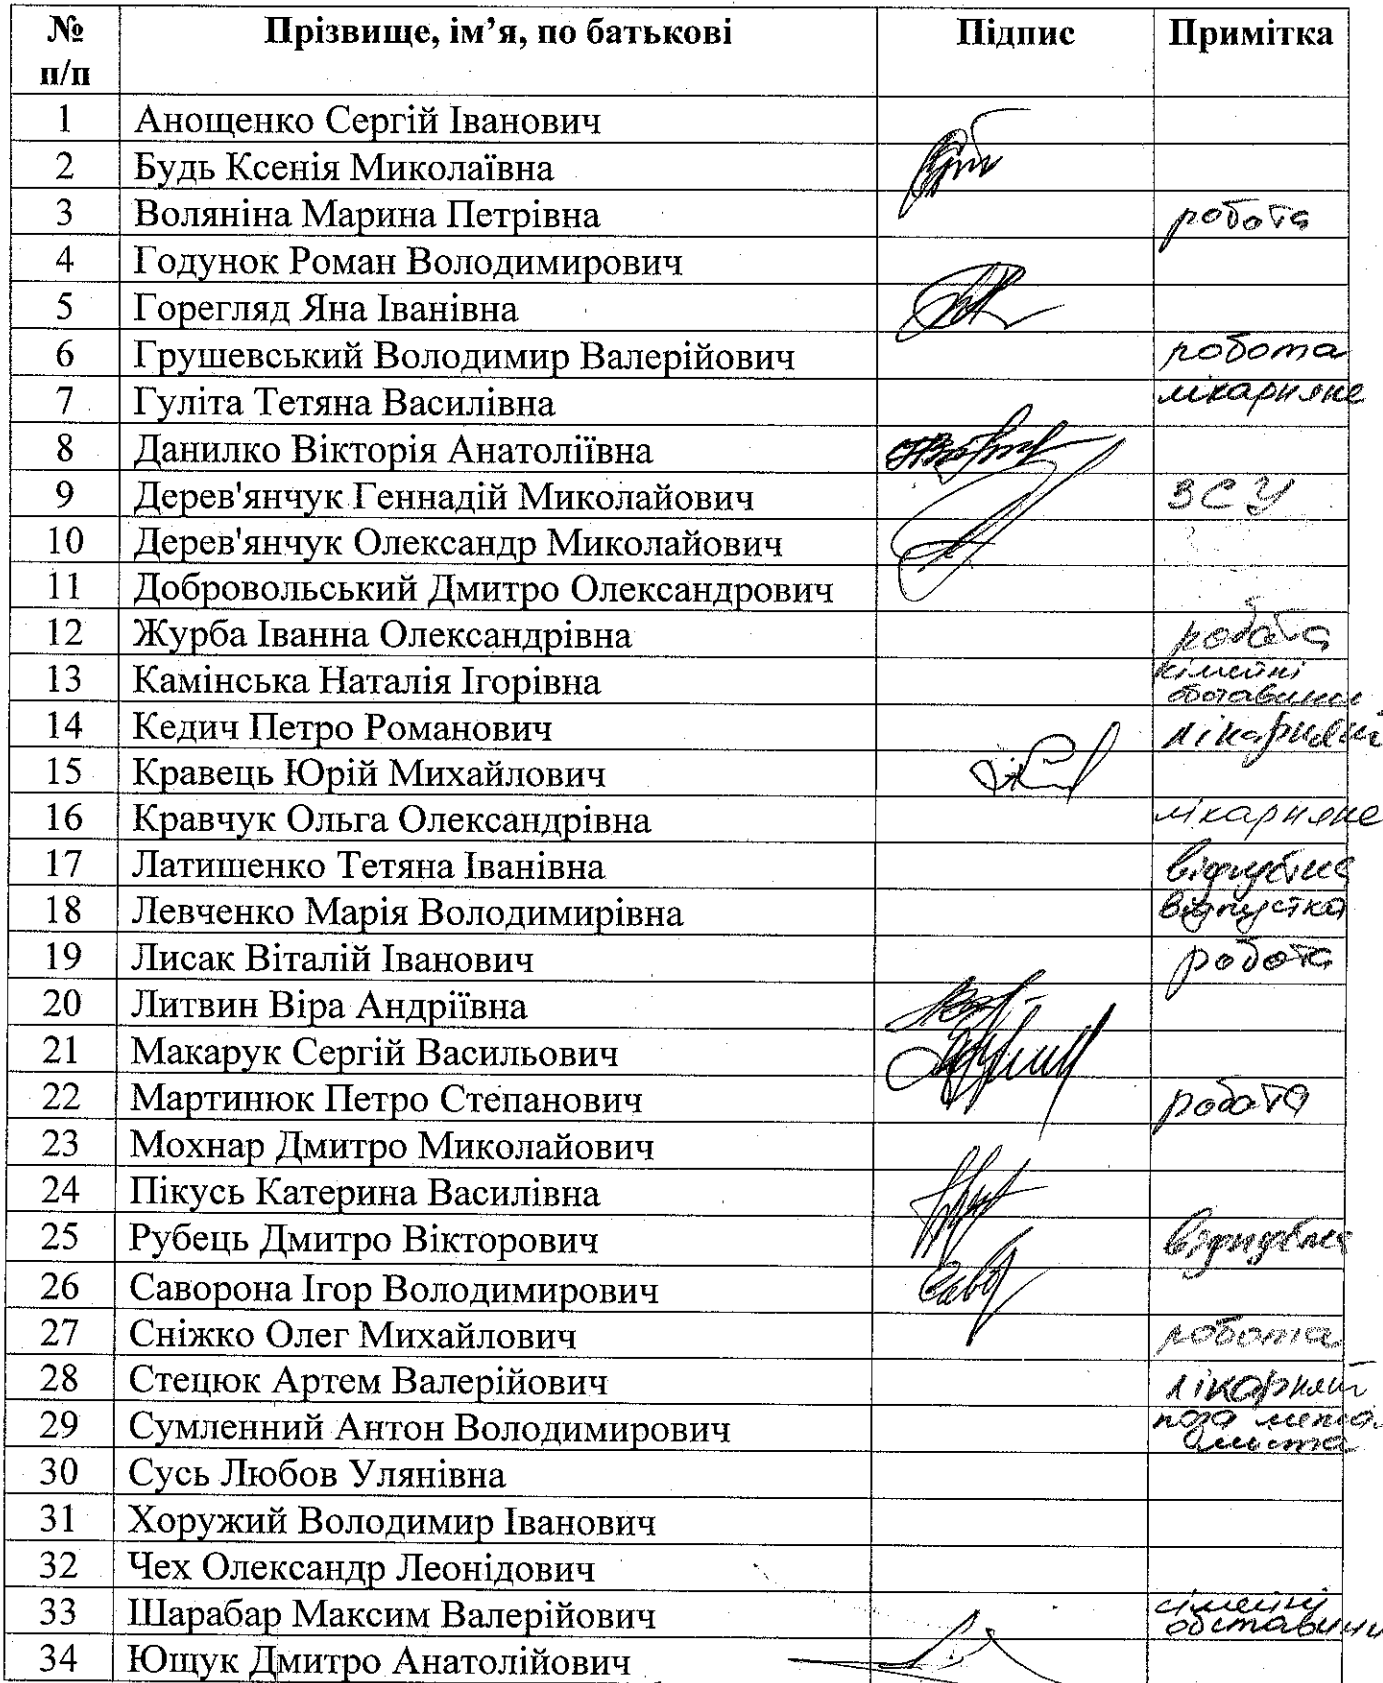 № п/п Прізвище, ім’я, по батькові Підпис Примітка
1 Анощенко Сергій Іванович
2 Будь Ксенія Миколаївна
3 Воляніна Марина Петрівна робота
4 Годунок Роман Володимирович
5 Горегляд Яна Іванівна
6 Грушевський Володимир Валерійович робота
7 Гуліта Тетяна Василівна лікарняне
8 Данилко Вікторія Анатоліївна
9 Дерев'янчук Геннадій Миколайович ЗСУ
10 Дерев'янчук Олександр Миколайович
11 Добровольський Дмитро Олександрович
12 Журба Іванна Олександрівна робота
13 Камінська Наталія Ігорівна сімейні обставини
14 Кедич Петро Романович лікарняний
15 Кравець Юрій Михайлович
16 Кравчук Ольга Олександрівна лікарняне
17 Латишенко Тетяна Іванівна
18 Левченко Марія Володимирівна відпустка
19 Лисак Віталій Іванович робота
20 Литвин Віра Андріївна
21 Макарук Сергій Васильович
22 Мартинюк Петро Степанович робота
23 Мохнар Дмитро Миколайович
24 Пікусь Катерина Василівна
25 Рубець Дмитро Вікторович
26 Саворона Ігор Володимирович
27 Сніжко Олег Михайлович робота
28 Стецюк Артем Валерійович лікарняний
29 Сумленний Антон Володимирович поза міста
30 Сусь Любов Улянівна
31 Хоружий Володимир Іванович
32 Чех Олександр Леонідович
33 Шарабар Максим Валерійович сімейні обставини
34 Ющук Дмитро Анатолійович